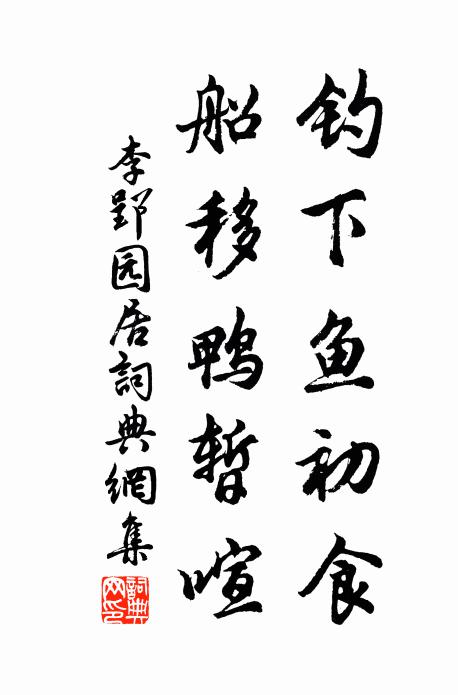 钓下鱼初食
船移鸭暂喧
李郢园居詞典網集
詞典网印